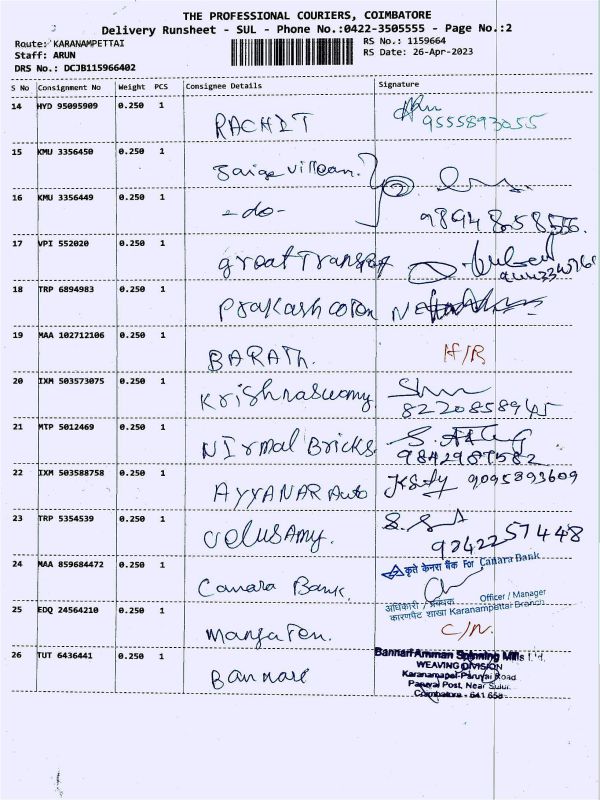 THE PROFESSIONAL COURIERS, COIMBATORE
Delivery Runsheet - SUL - Phone No.:0422-3505555 - Page No.:2
Route: KARANAMPETTAI RS No.: 1159664
Staff: ARUN RS Date: 26-Apr-2023
DRS No.: DCJB115966402
S No Consignment No Weight PCS Consignee Details Signature
14 HYD 95095909 0.250 1
RACHIT 9555893055
15 KMU 3356450 0.250 1
16 KMU 3356449 0.250 1
-do- 9894858555.
17 VPI 552020 0.250 1
great Transport
18 TRP 6894983 0.250 1
Prakash coton
19 MAA 102712106 0.250 1
BARATH. H/R
20 IXM 503573075 0.250 1
Krishnaswamy
8220858945
21 MTP 5012469 0.250 1
Nirmal Bricks 9842987582
22 IXM 503588758 0.250 1
AYYANAR Auto 9095893609
23 TRP 5354539 0.250 1
velusamy. 9242257448
24 MAA 859684472 0.250 1
कृते केनरा बैंक For Canara Bank
Canara Bank.
अधिकारी / प्रबंधक Officer / Manager
कारणपेट शाखा Karanampettai Branch
25 EDQ 24564210 0.250 1
C/N.
26 TUT 6436441 0.250 1
Bannari
Bannari Amman Spinning Mills Ltd.
WEAVING DIVISION
Karanampet-Paruvai Road
Paruvai Post, Near Sulur.
Coimbatore - 641 658